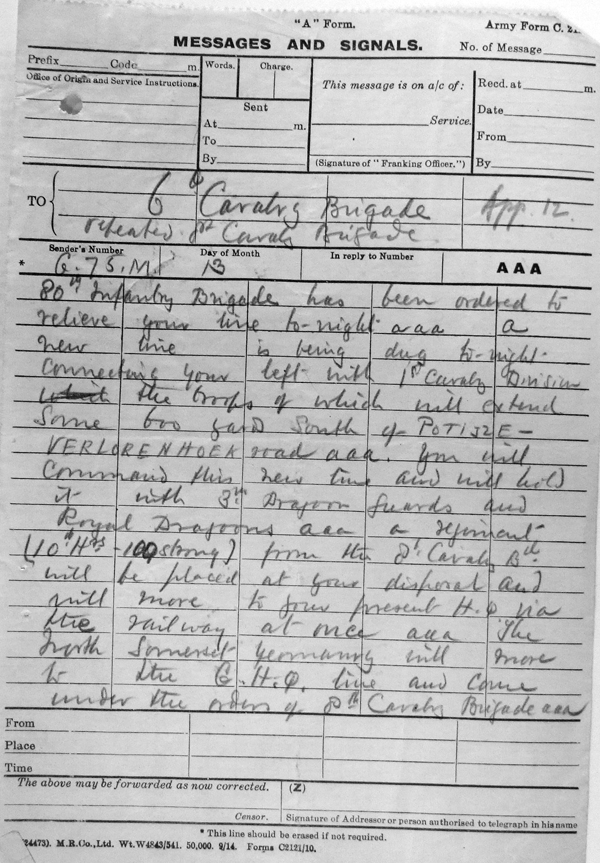 "A" Form.
Army Form C. 21
MESSAGES AND SIGNALS.
No. of Message
Prefix Code m.
Words. Charge.
This message is on a/c of:
Recd. at m.
Office of Origin and Service Instructions.
Sent
Date
At m.
Service.
From
To
By
(Signature of "Franking Officer.")
By
TO
6th Cavalry Brigade
App. 12.
repeated Cavalry Brigade.
Sender's Number
Day of Month
In reply to Number
AAA
* G.75.M. 13
80th Infantry Brigade has been ordered to
relieve your line to-night aaa a
new line is being dug to-night
connecting your left with 1st Cavalry Division
the troops of which will extend
some 600 yards South of POTIJZE-
VERLORENHOEK road aaa. You will
command this new line and will hold
it with 3rd Dragoon Guards and
Royal Dragoons aaa a regiment
(10th Hrs - 100 strong) from the 8th Cavalry Bde.
will be placed at your disposal and
will move to your present H.Q via
the railway at once aaa The
North Somerset Yeomanry will move
to the G.H.Q. line and come
under the orders of 8th Cavalry Brigade aaa
From
Place
Time
The above may be forwarded as now corrected. (Z)
Censor. Signature of Addressor or person authorised to telegraph in his name
* This line should be erased if not required.
24473). M.R.Co.,Ltd. Wt.W4843/541. 50,000. 9/14. Forms C2121/10.